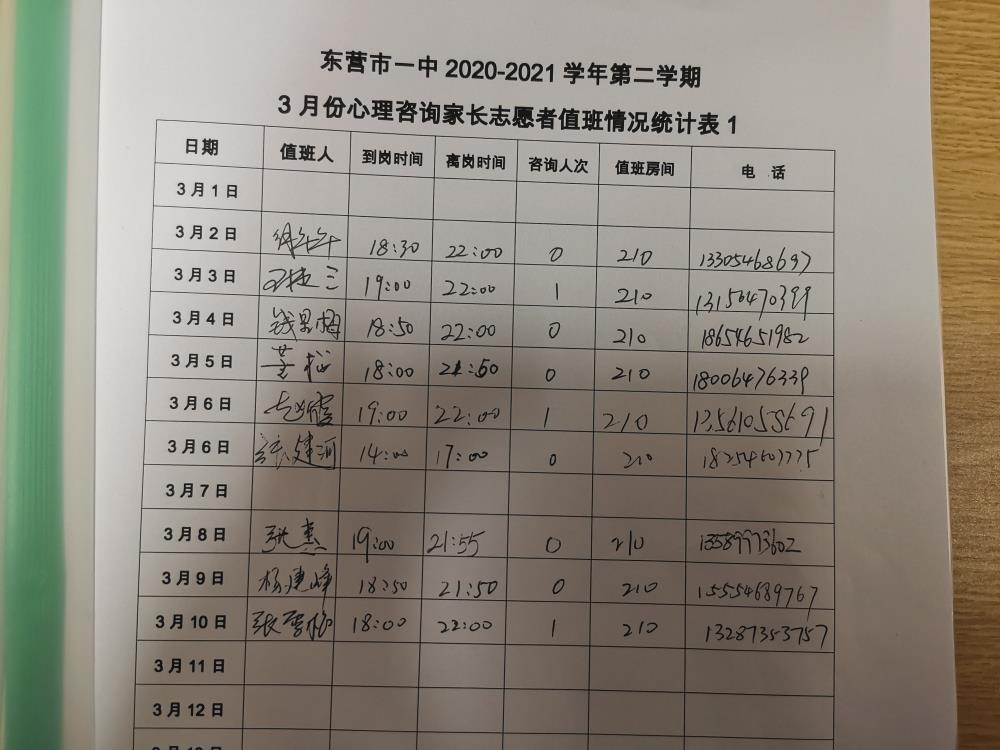 东营市一中 2020-2021 学年第二学期
3 月份心理咨询家长志愿者值班情况统计表 1
日期 值班人 到岗时间 离岗时间 咨询人次 值班房间 电 话
3 月 1 日
3 月 2 日 18:30 22:00 0 210 13305468697
3 月 3 日 19:00 22:00 1 210
3 月 4 日 18:50 22:00 0 210 18654651982
3 月 5 日 18:00 21:50 0 210 18006476339
3 月 6 日 19:00 22:00 1 210
3 月 6 日 张建河 14:00 17:00 0 210
3 月 7 日
3 月 8 日 张惠 19:00 21:55 0 210 13589973602
3 月 9 日 杨建峰 18:50 21:50 0 210 15554689767
3 月 10 日 张雪梅 18:00 22:00 1 210 13287353757
3 月 11 日
3 月 12 日